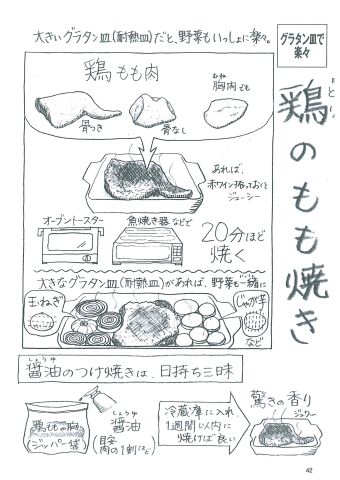 大きいグラタン皿(耐熱皿)だと、野菜もいっしょに楽々。
グラタン皿で
楽々
鶏のもも焼き
とり
鶏もも肉
骨つき
骨なし
むね
胸肉も
あれば、
赤ワイン振っておくと
ジューシー
オーブントースター
魚焼き器などで
20分ほど
焼く
大きなグラタン皿(耐熱皿)があれば、野菜も一緒に
玉ねぎ
じゃが芋
など
しょうゆ
醤油のつけ焼きは、日持ち三昧
鶏ももか胸
(ジッパー袋)
しょうゆ
醤油
(目安
肉の1割ほど)
冷蔵庫に入れ
1週間以内に
焼けば良い
驚きの香り
ジュワー
42